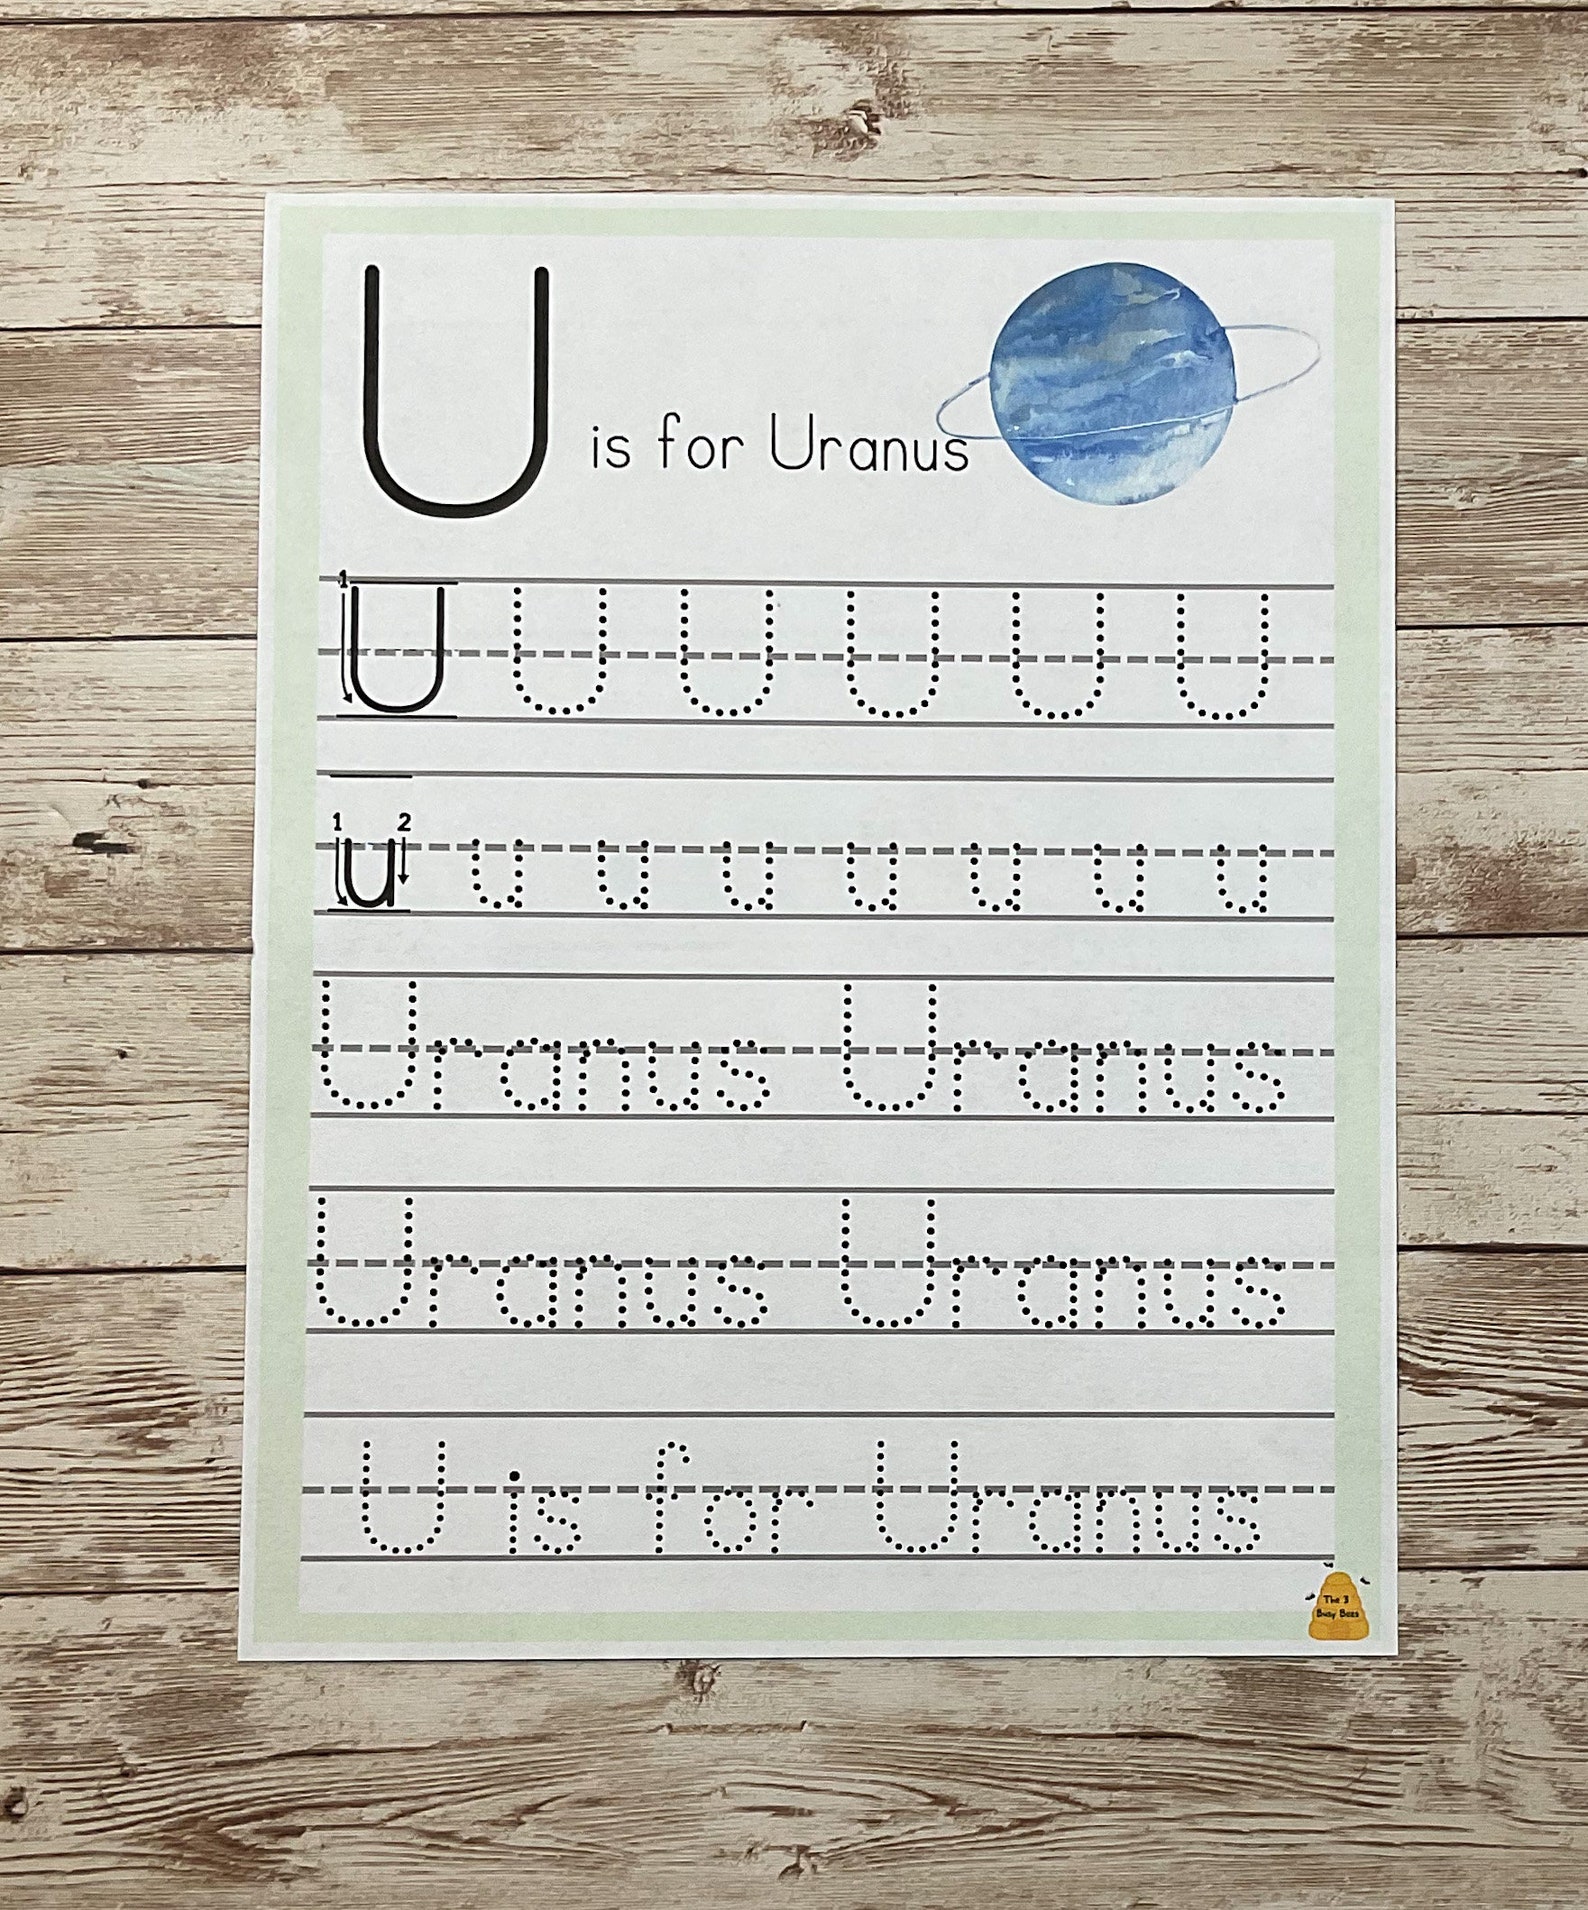 U is for Uranus
1
U U U U U U
1 2
u u u u u u u u
Uranus Uranus
Uranus Uranus
U is for Uranus
The 3
Busy Bees